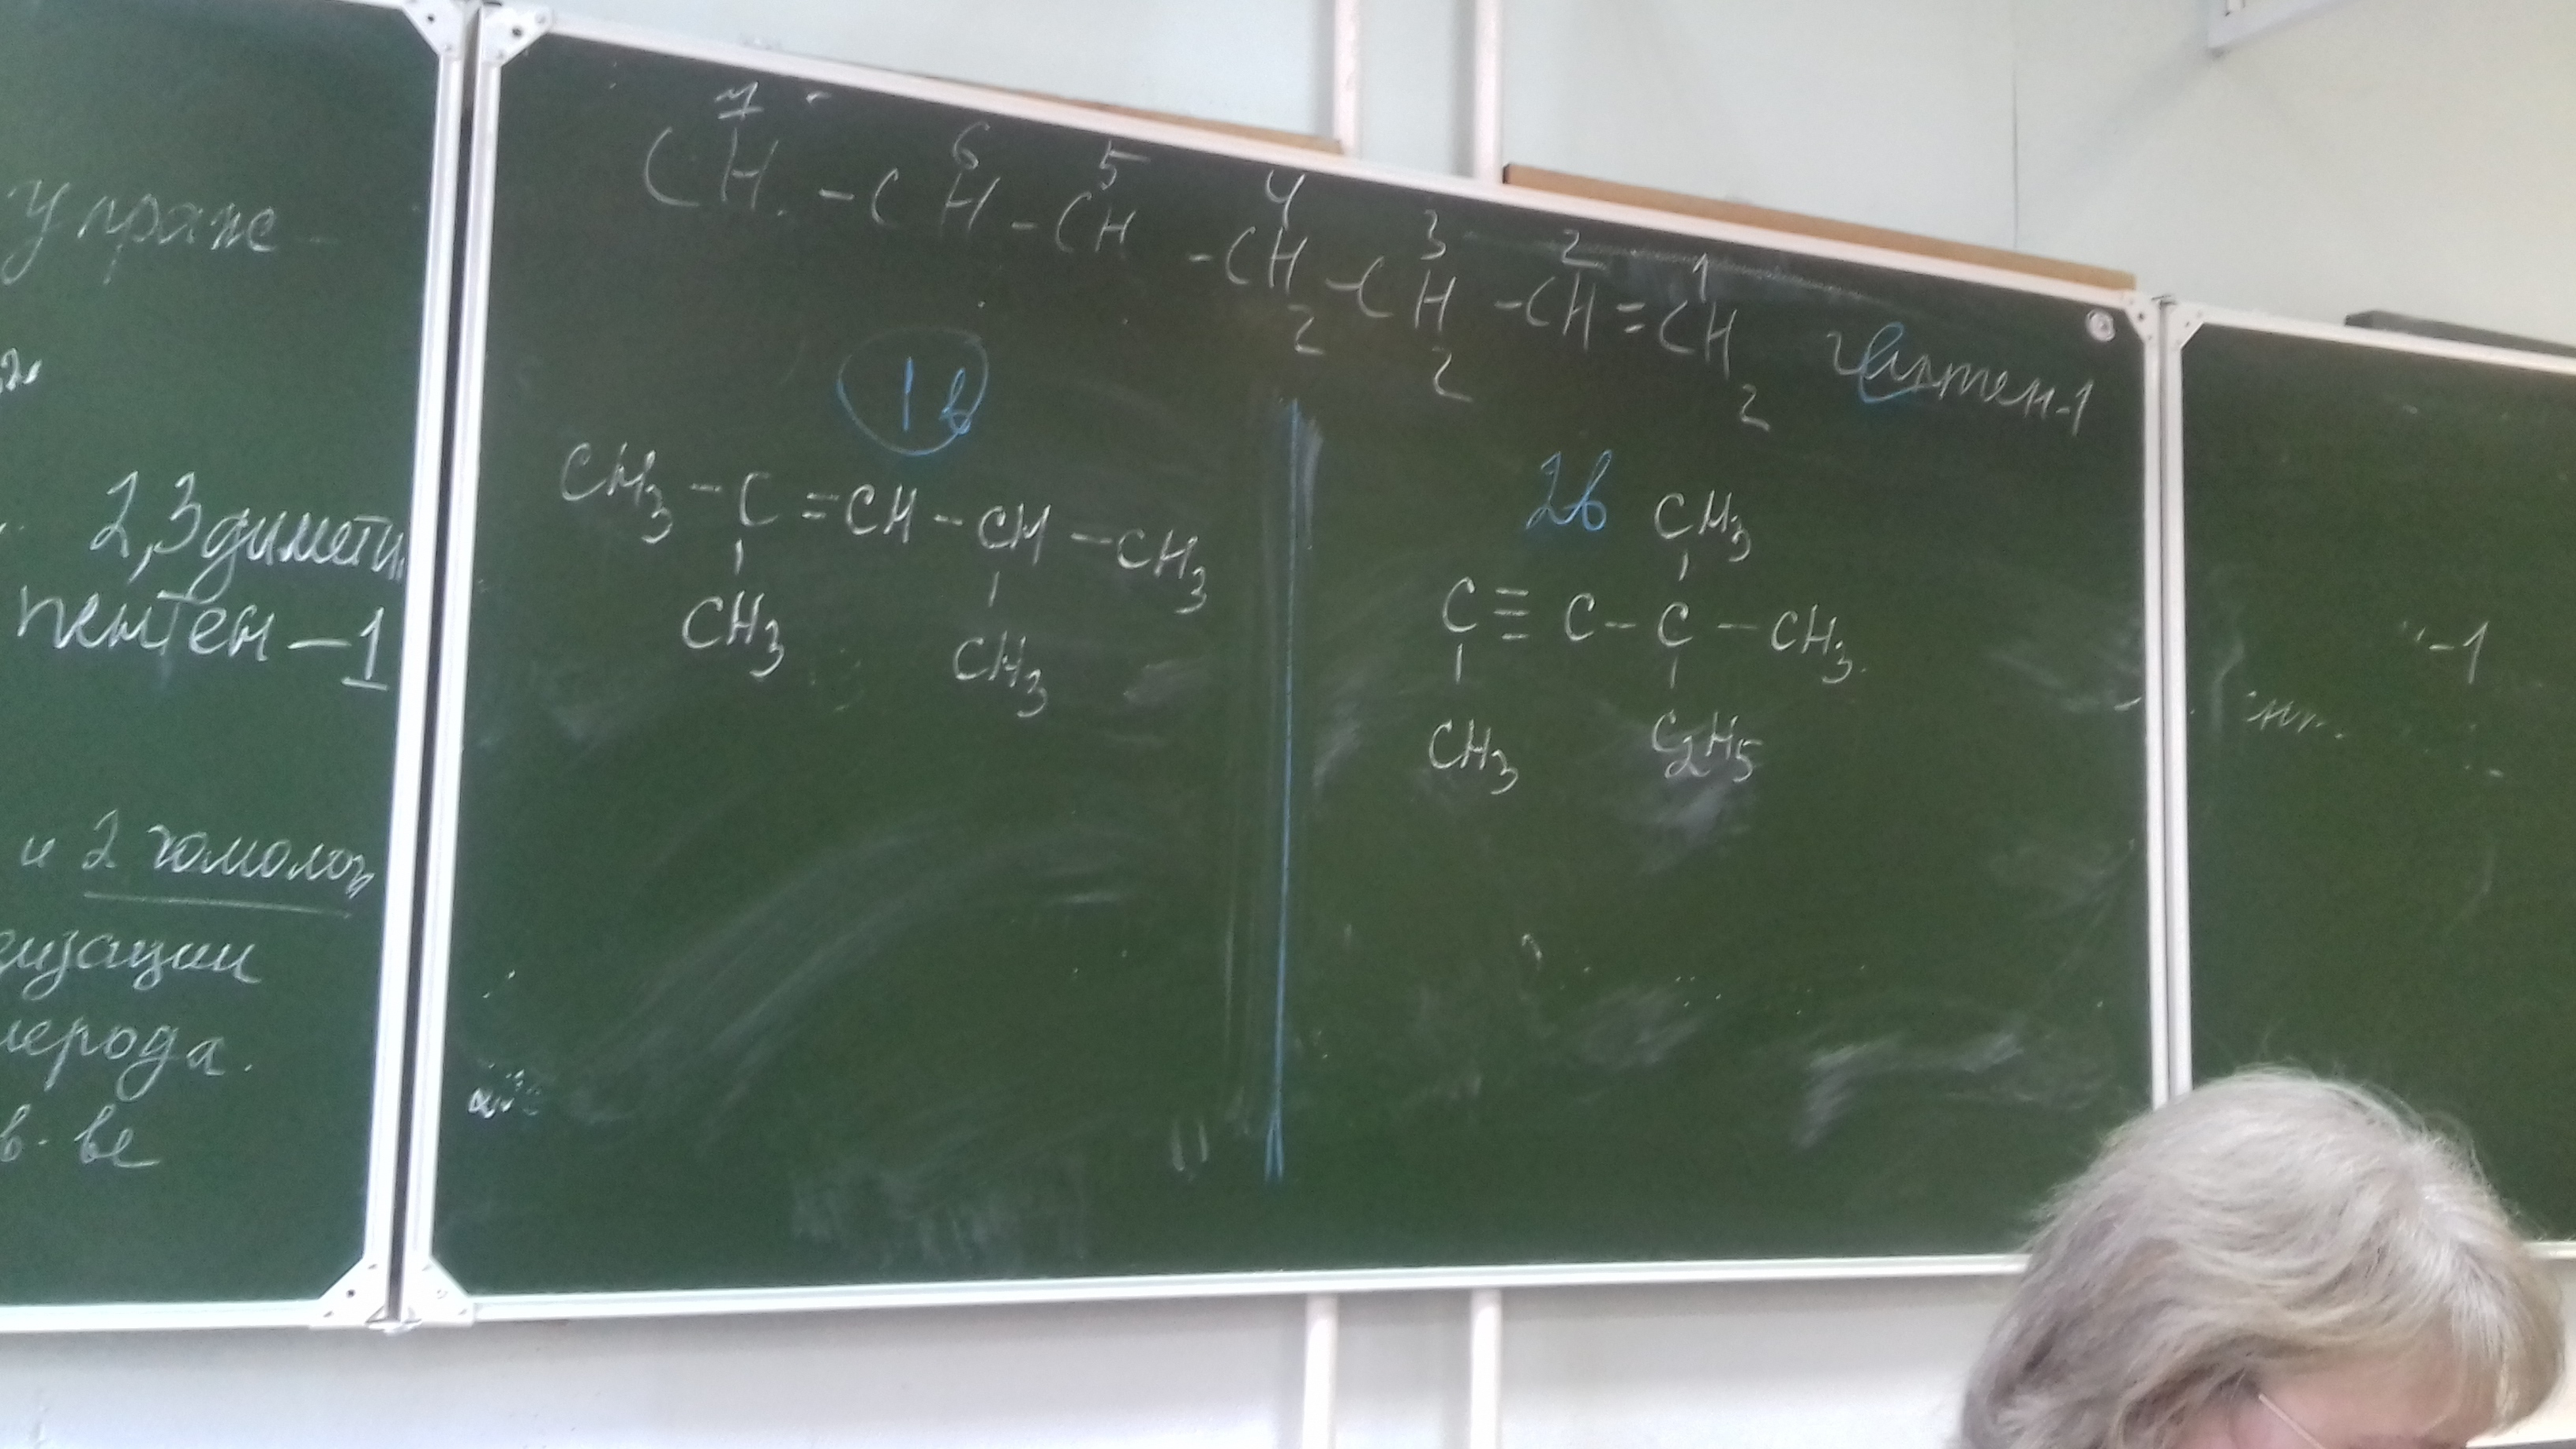 упраж-
2,3 димети
пентен-1
и 2 гомолог
изации
лерода.
в-ве
7 6 5 4 3 2 1
CH - CH - CH - CH2 - CH2 - CH = CH2 гептен-1
1 в
CH3 - C = CH - CH - CH3
CH3 CH3
2 в
CH3
C ≡ C - C - CH3
CH3 C2H5
-1